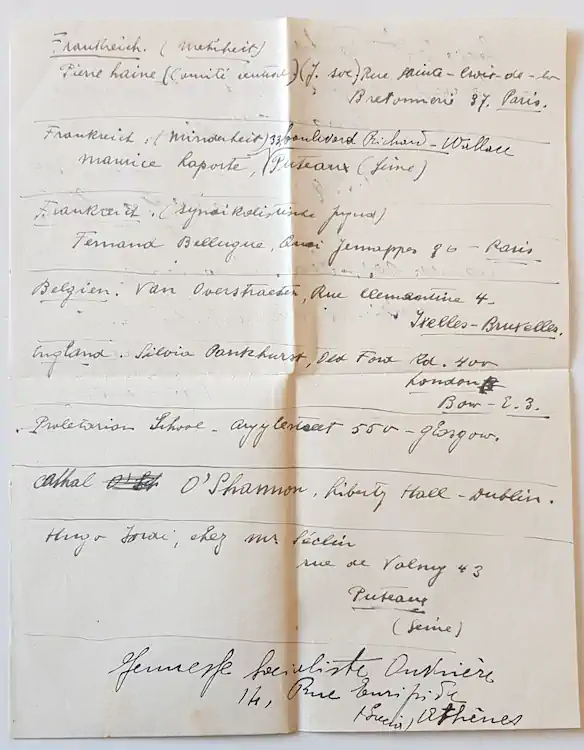 Frankreich. (Mehrheit)
Pierre Laine (Comité central) (J. soc) Rue Sainte-Croix-de-la
Bretonnerie 37. Paris.
Frankreich. (Minderheit) 33 boulevard Richard-Wallace
Maurice Laporte, Puteaux (Seine)
Frankreich. (Syndikalistische Jugend)
Fernand Bellugue, Quai Jemappes 96 - Paris
Belgien. Van Overstraeten, Rue Clementine 4
Ixelles-Bruxelles.
England. Silvia Pankhurst, Old Ford Rd. 400
London
Bow - E.3.
Proletarian School - Argylestreet 550 - Glasgow.
Cathal O'Shannon, Liberty Hall - Dublin.
Hugo, chez Mr Séclin
rue de Valmy 43
Puteaux
(Seine)
Jeunesse Socialiste Ouvrière
14, Rue Euripide
Athènes